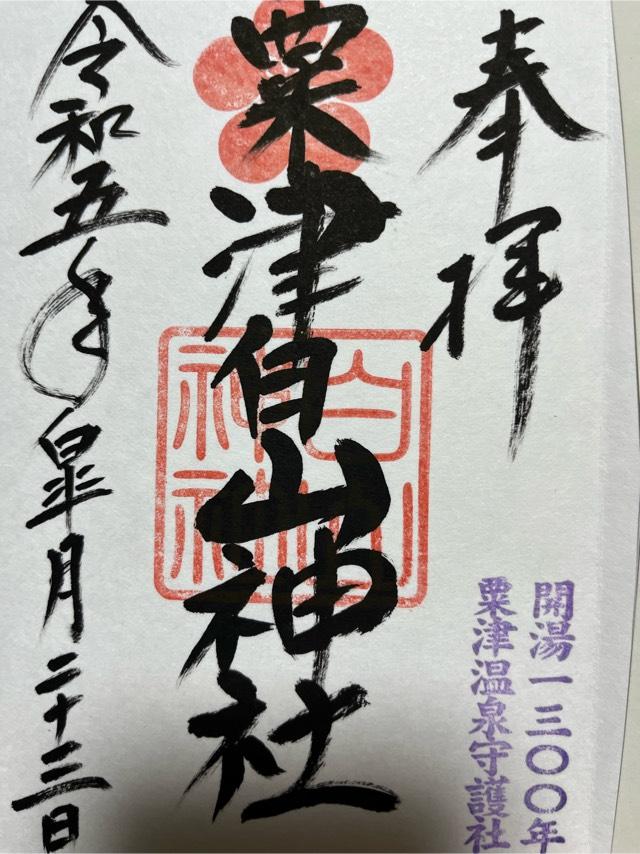 奉拝
開湯一三〇〇年
粟津温泉守護社
粟津白山神社
白山
神社
令和五年皐月二十三日